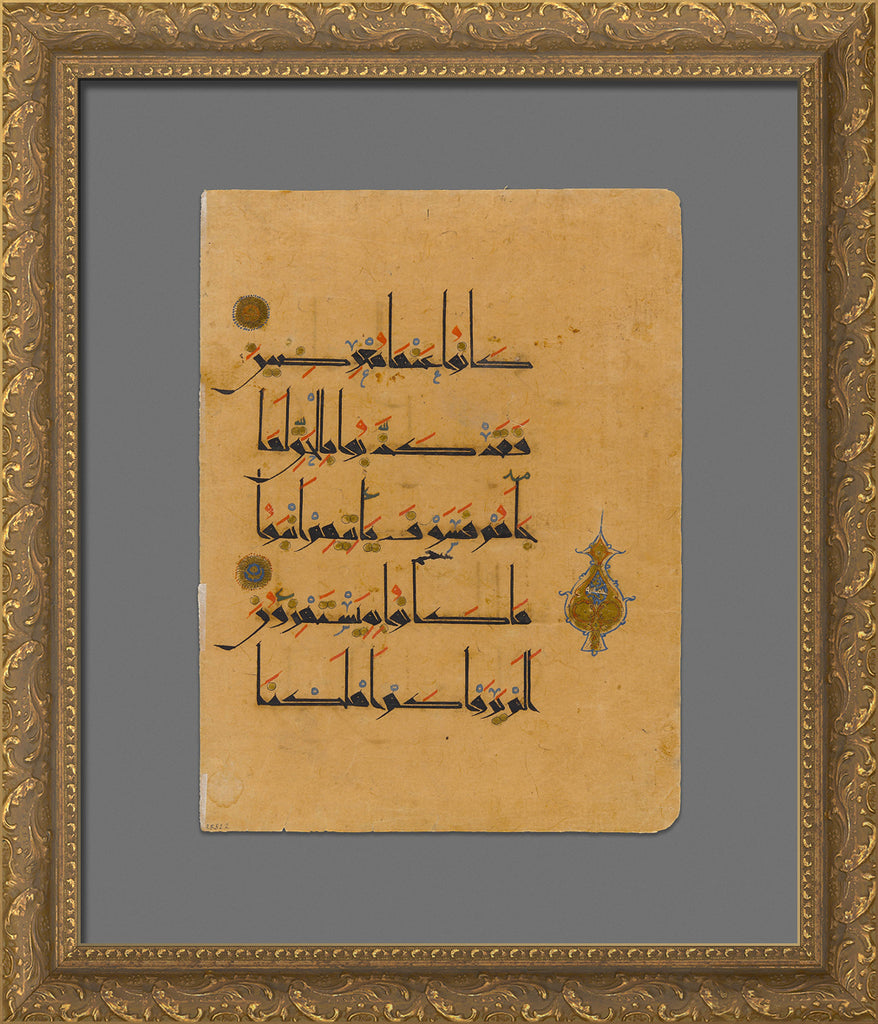 كَانُوا عَنْهَا مُعْرِضِينَ
فَقَدْ كَذَّبُوا بِالْحَقِّ لَمَّا
جَاءَهُمْ فَسَوْفَ يَأْتِيهِمْ أَنْبَؤُا
مَا كَانُوا بِهِ يَسْتَهْزِؤُنَ
أَلَمْ يَرَوْا كَمْ أَهْلَكْنَا